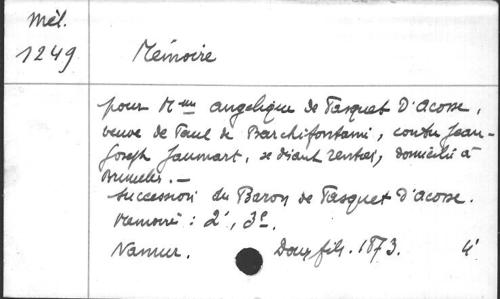 Mél.
1249
Mémoire
pour Mme Angélique de Pasquet D'Acosse,
veuve de Paul de Barchifontaine, contre Jean-
Joseph Jaumart, se disant rentier, domicilié à
Bruxelles. —
Succession du Baron de Pasquet D'Acosse.
Mémoire : 2e, 3e.
Namur. Doux fils. 1873. 4°